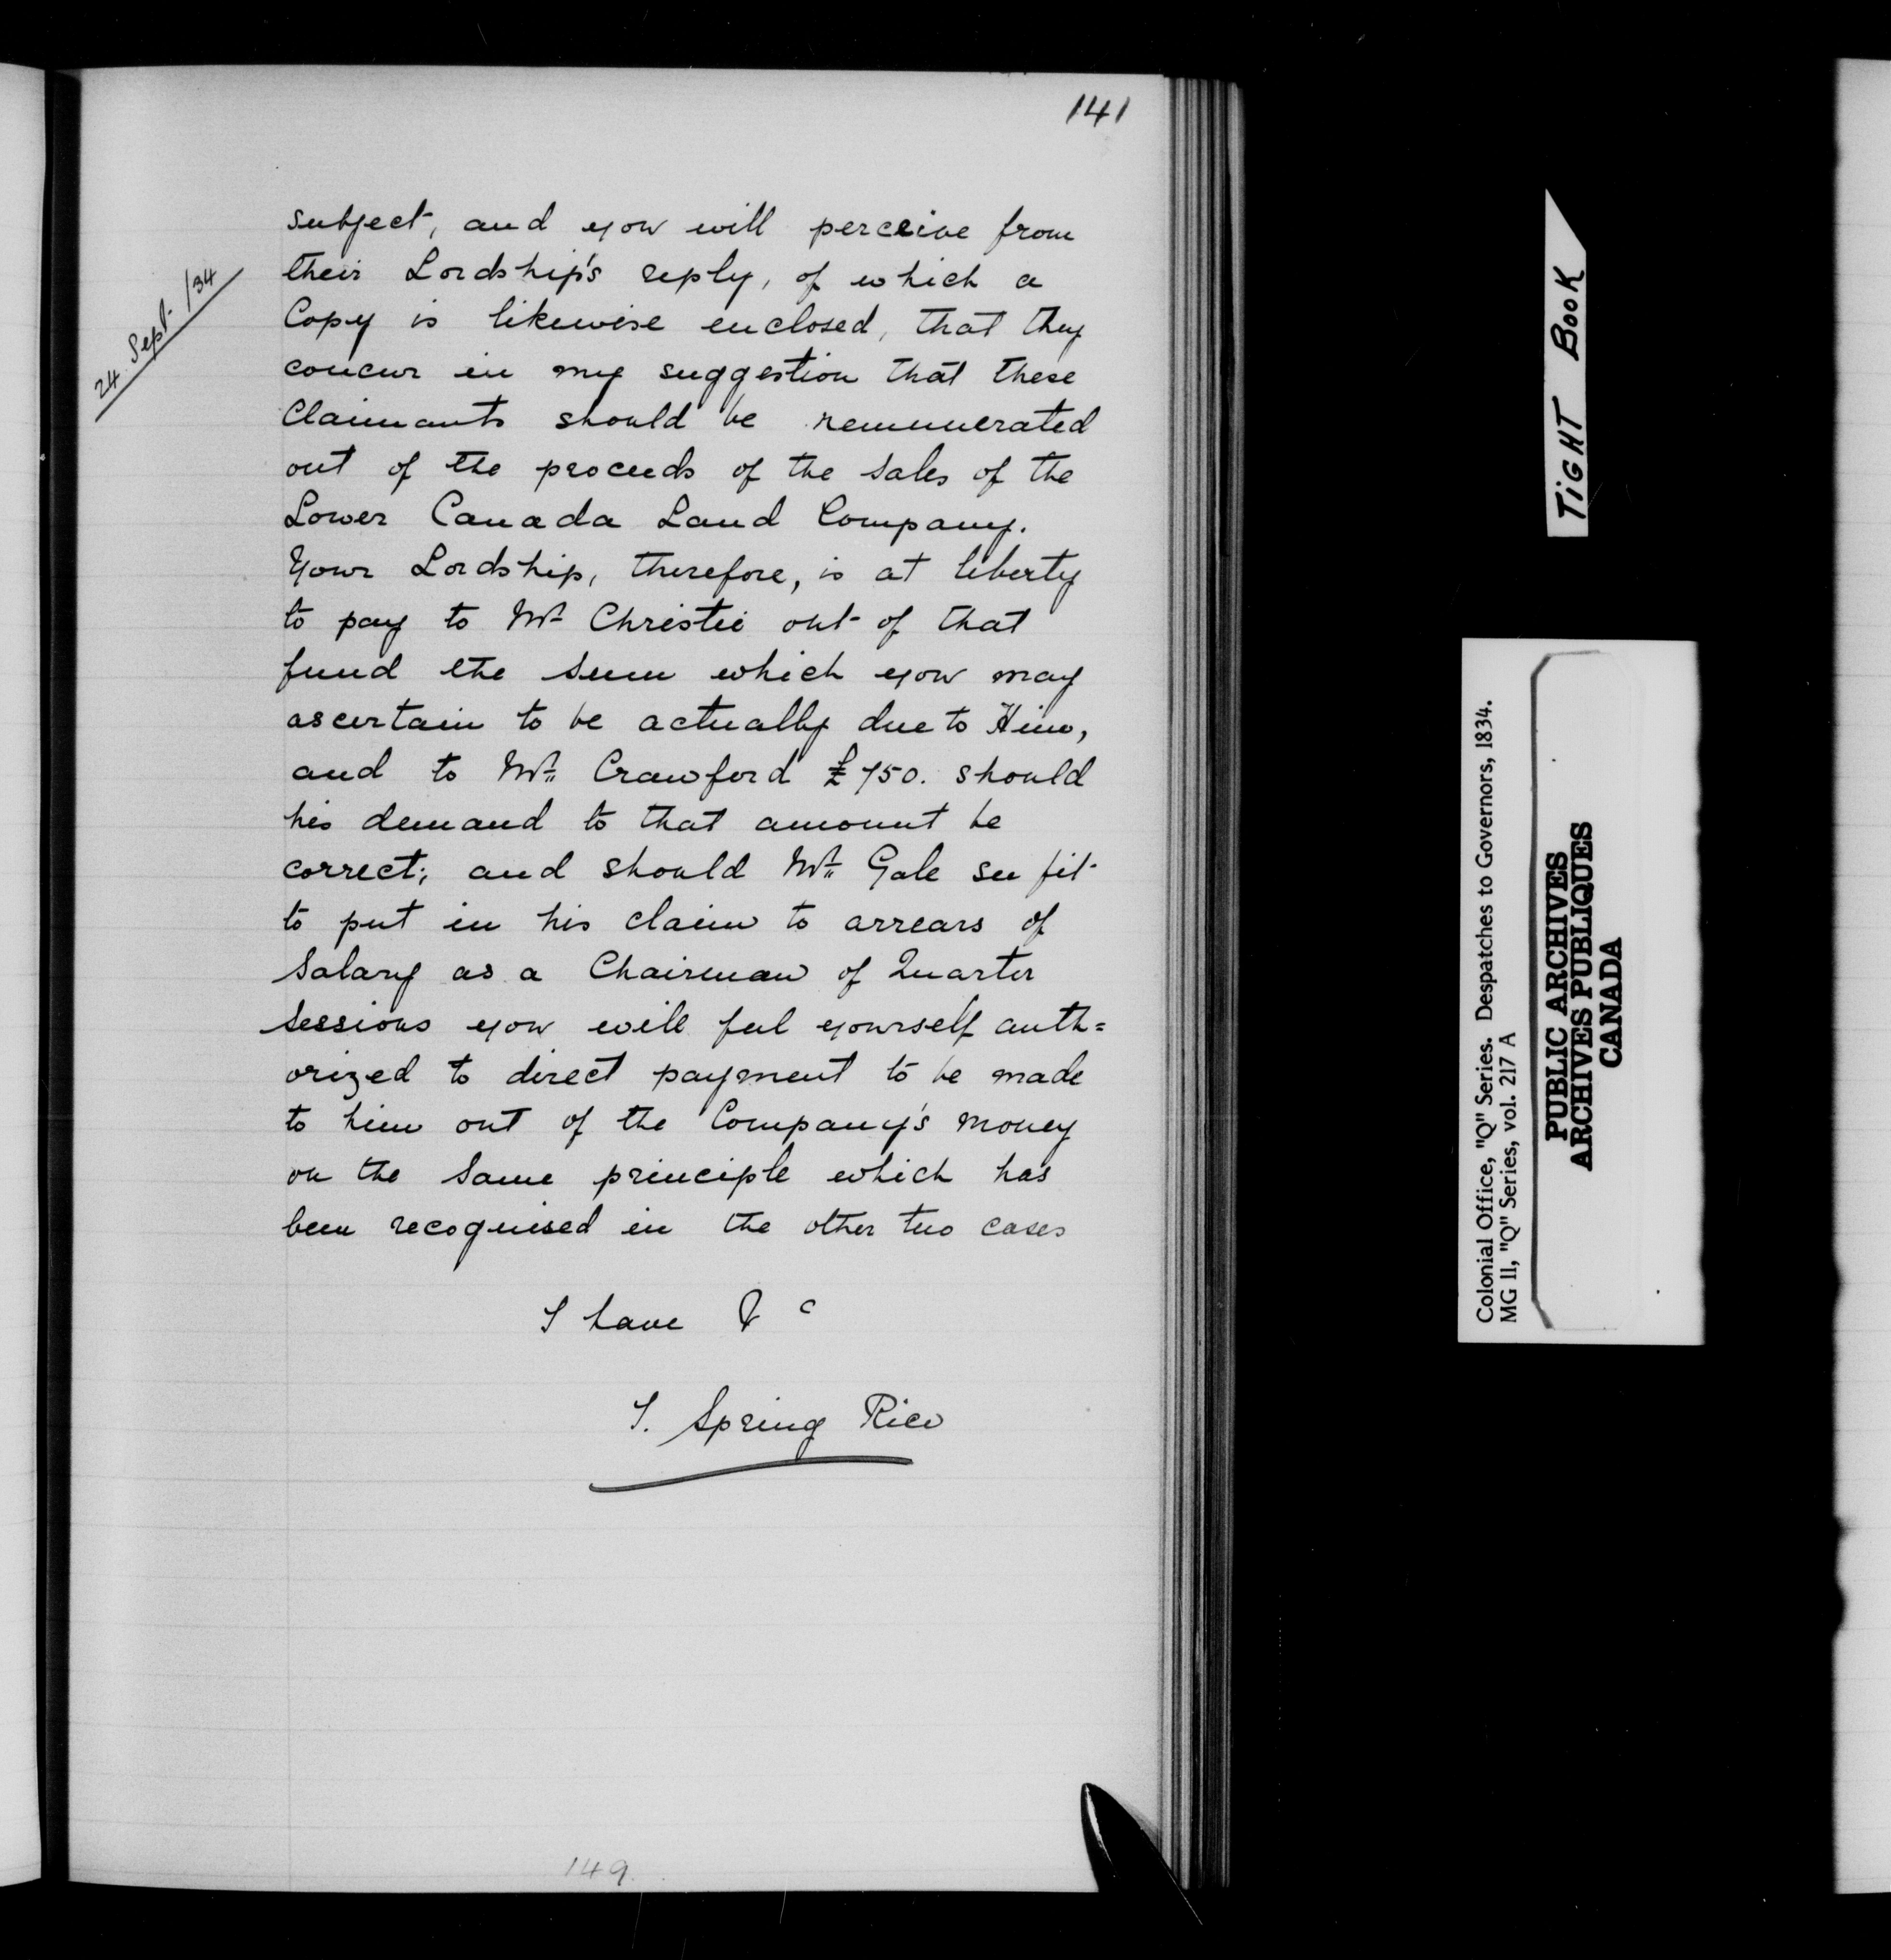 141
24. Sept. /34
subject, and you will perceive from
their Lordship's reply, of which a
Copy is likewise enclosed, that they
concur in my suggestion that these
Claimants should be remunerated
out of the proceeds of the sales of the
Lower Canada Land Company.
Your Lordship, therefore, is at liberty
to pay to Mr Christie out of that
fund the sum which you may
ascertain to be actually due to Him,
and to Mr Crawford £750. should
his demand to that amount be
correct; and should Mr Gale see fit
to put in his claim to arrears of
Salary as a Chairman of Quarter
Sessions you will feel yourself auth=
orized to direct payment to be made
to him out of the Company's money
on the same principle which has
been recognised in the other two cases
I have &c
T. Spring Rice
149.
TIGHT BOOK
Colonial Office, "Q" Series. Despatches to Governors, 1834.
MG 11, "Q" Series, vol. 217 A
PUBLIC ARCHIVES
ARCHIVES PUBLIQUES
CANADA